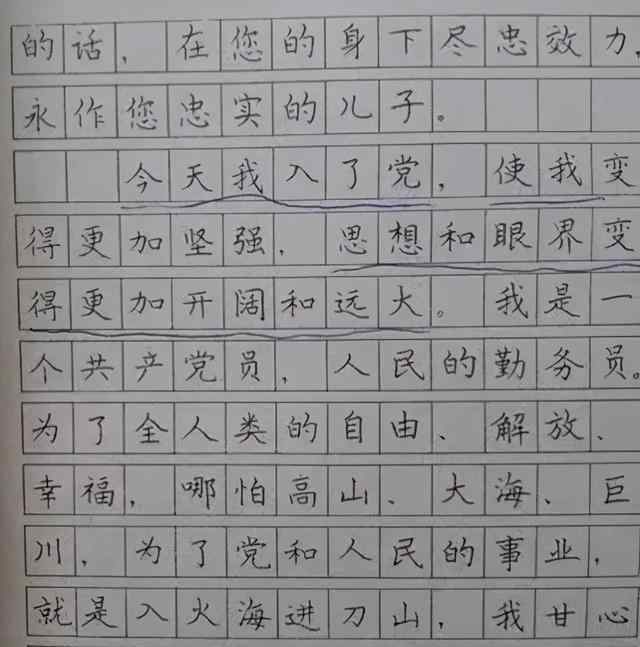 的话，在您的身下尽忠效力，
永作您忠实的儿子。
今天我入了党，使我变
得更加坚强，思想和眼界变
得更加开阔和远大。我是一
个共产党员，人民的勤务员。
为了全人类的自由、解放、
幸福，哪怕高山、大海、巨
川，为了党和人民的事业，
就是入火海进刀山，我甘心